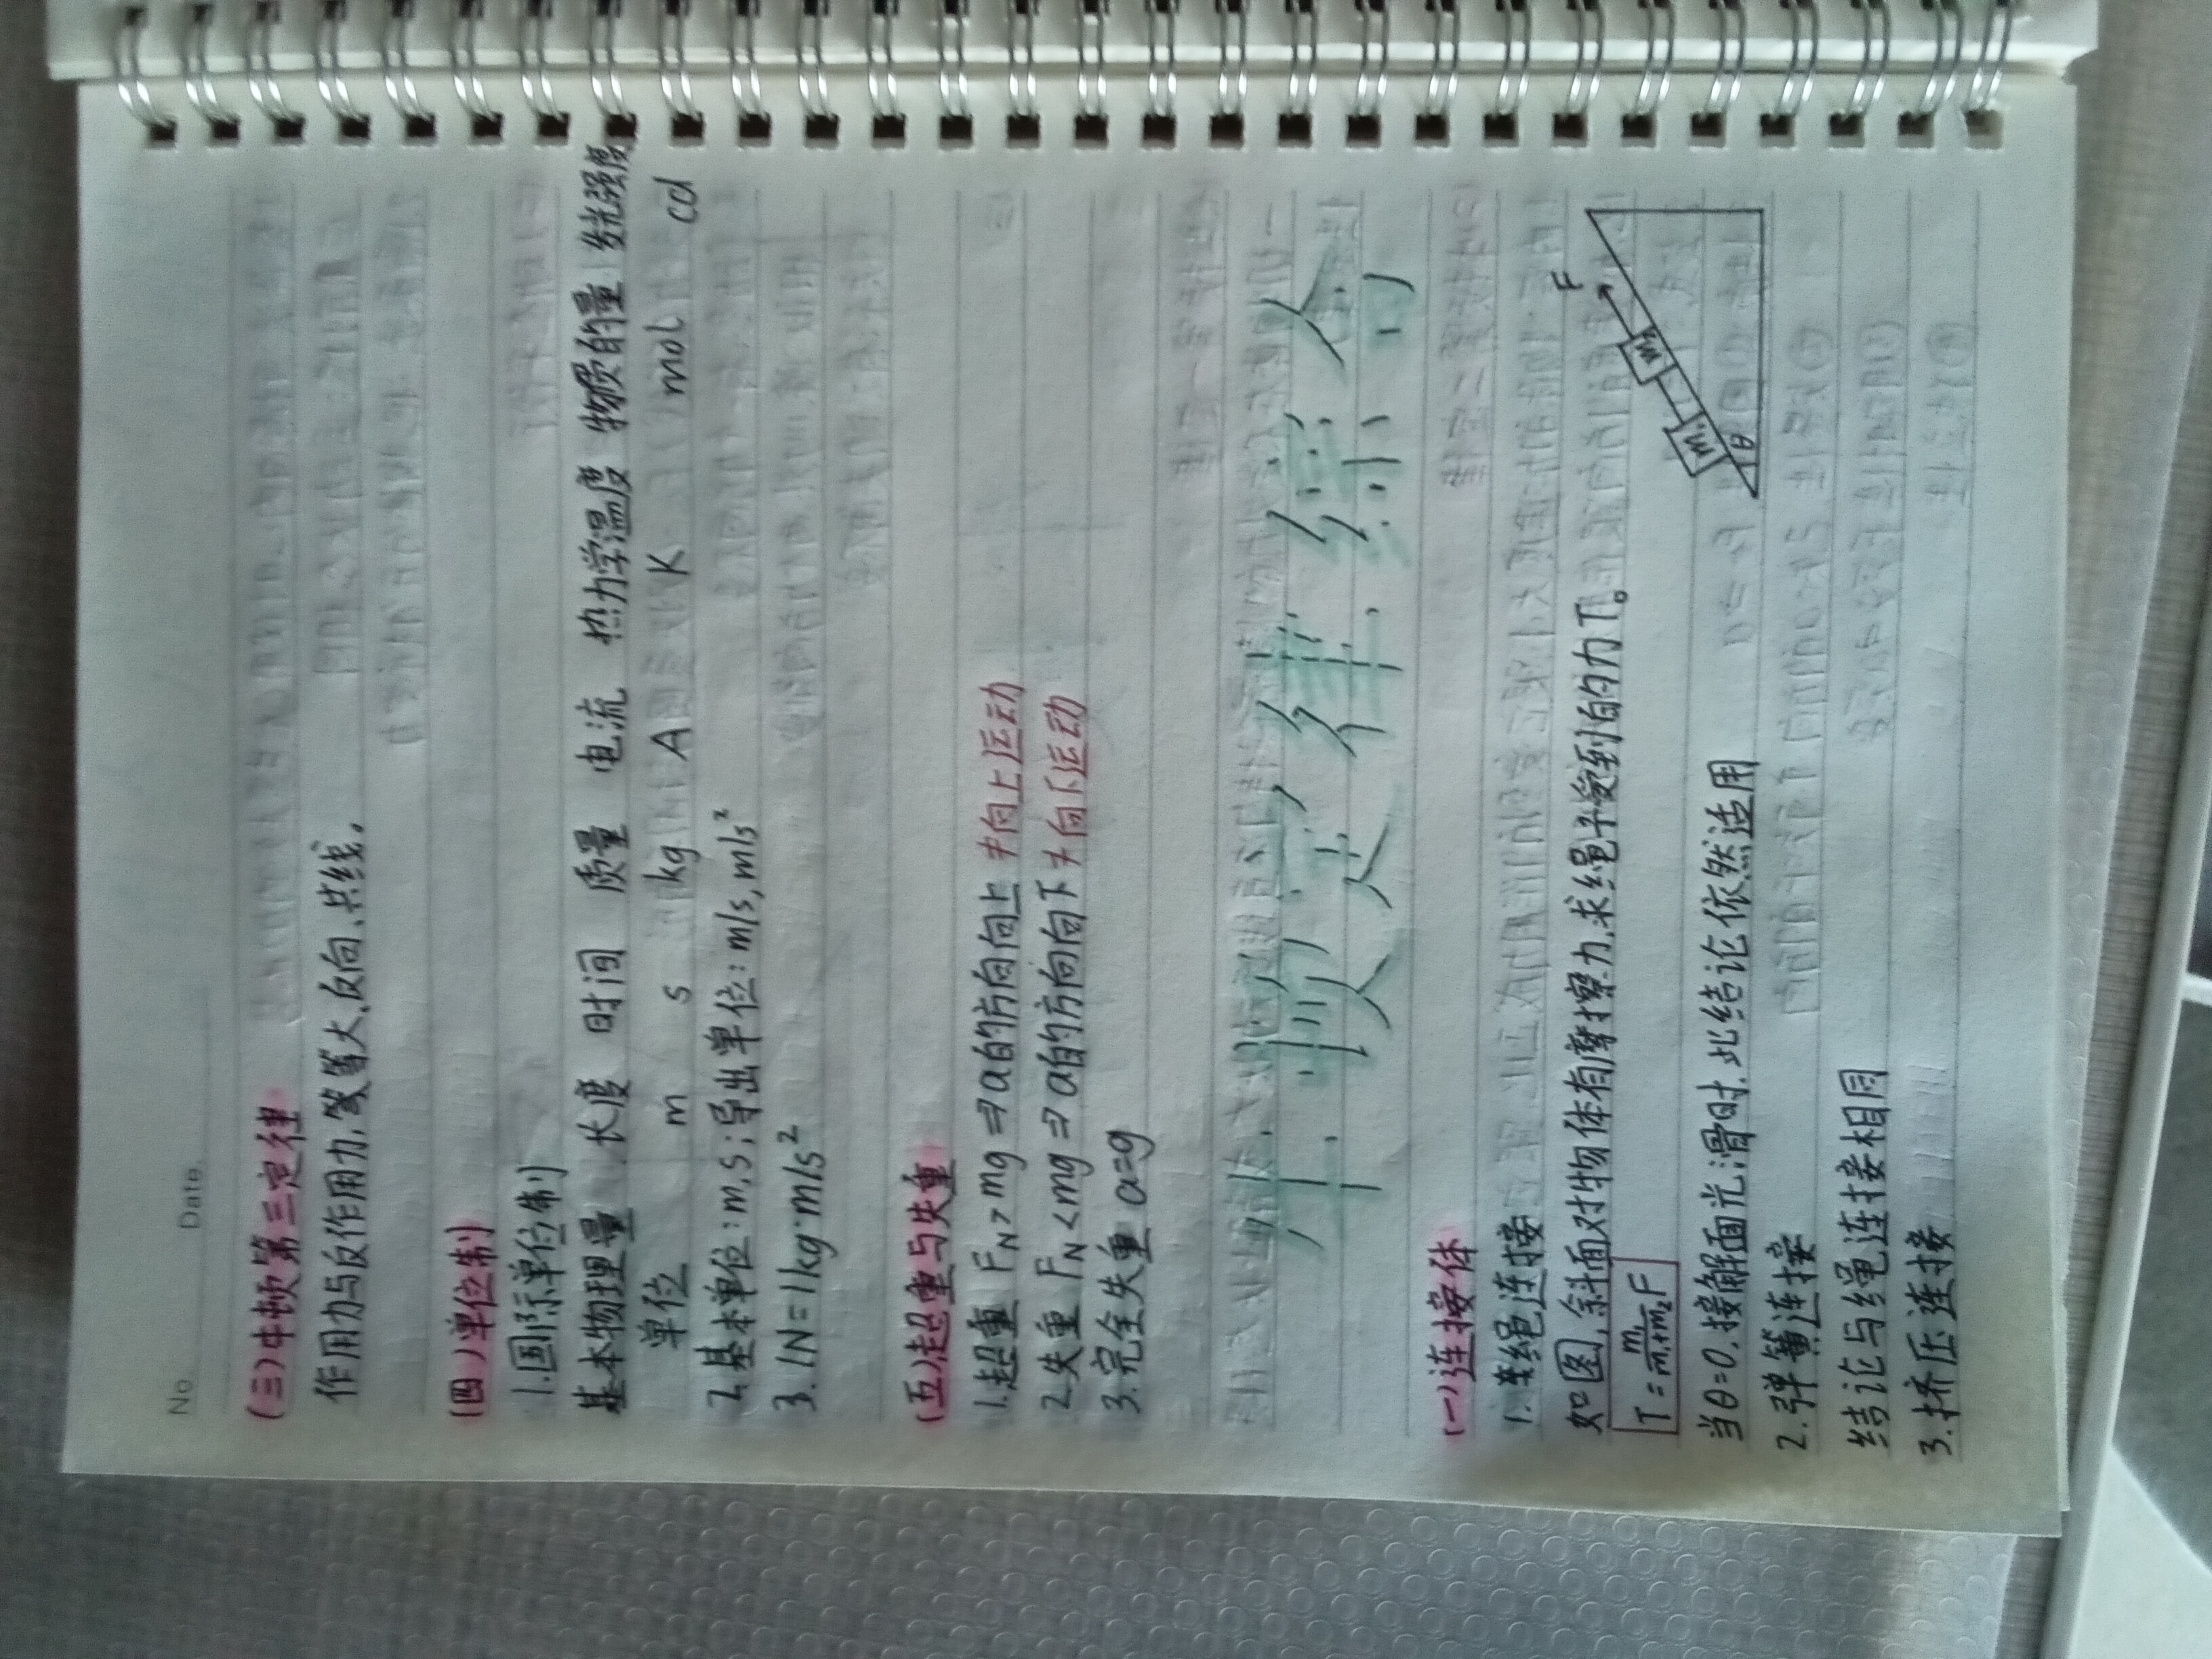 No. Date.
(三)牛顿第三定律
作用力与反作用力,等大、反向、共线。
(四)单位制
1.国际单位制
基本物理量 长度 时间 质量 电流 热力学温度 物质的量 发光强度
单位 m s kg A K mol cd
2.基本单位:m,s;导出单位:m/s,m/s²
3. 1N=1kg·m/s²
(五)超重与失重
1.超重 F_N>mg ⇒ a的方向向上 ≠向上运动
2.失重 F_N<mg ⇒ a的方向向下 ≠向下运动
3.完全失重 a=g
牛顿定律综合
(一)连接体
1.绳连接
如图,斜面对物体有摩擦力,求绳子受到的力T。
T=m₁/(m₁+m₂)F
F
m₂
m₁
θ
当θ=0,接触面光滑时,此结论依然适用
2.弹簧连接
结论与绳连接相同
3.挤压连接